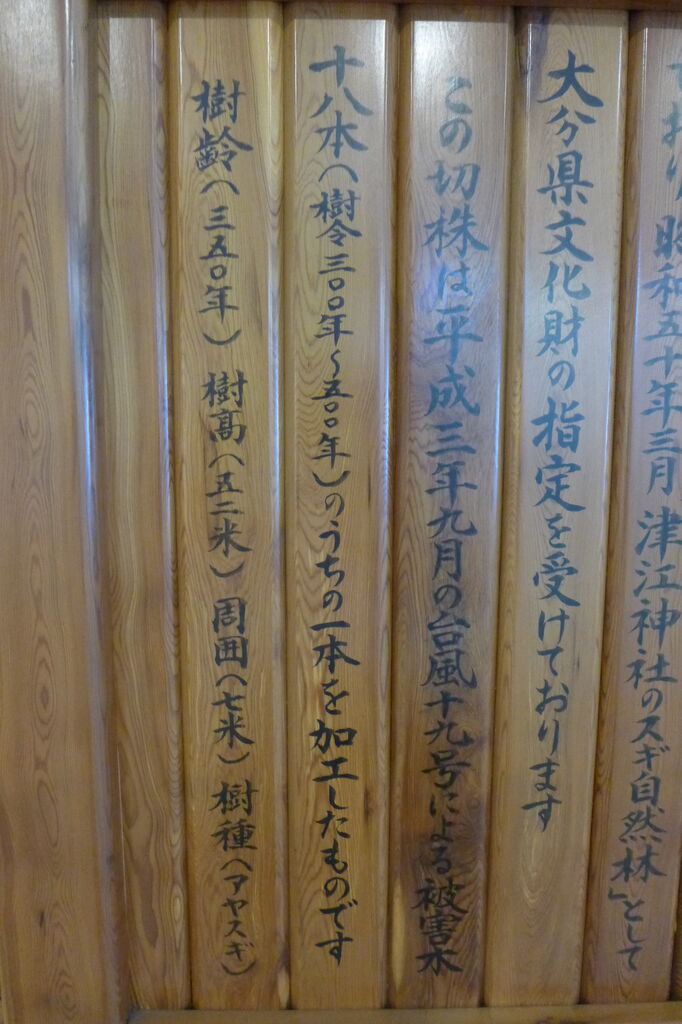 ており 昭和五十年三月 津江神社のスギ自然林」として
大分県文化財の指定を受けております
この切株は平成三年九月の台風十九号による被害木
十八本(樹令三〇〇年～五〇〇年)のうちの一本を加工したものです
樹齢(三五〇年) 樹高(五二米) 周囲(七米) 樹種(アヤスギ)